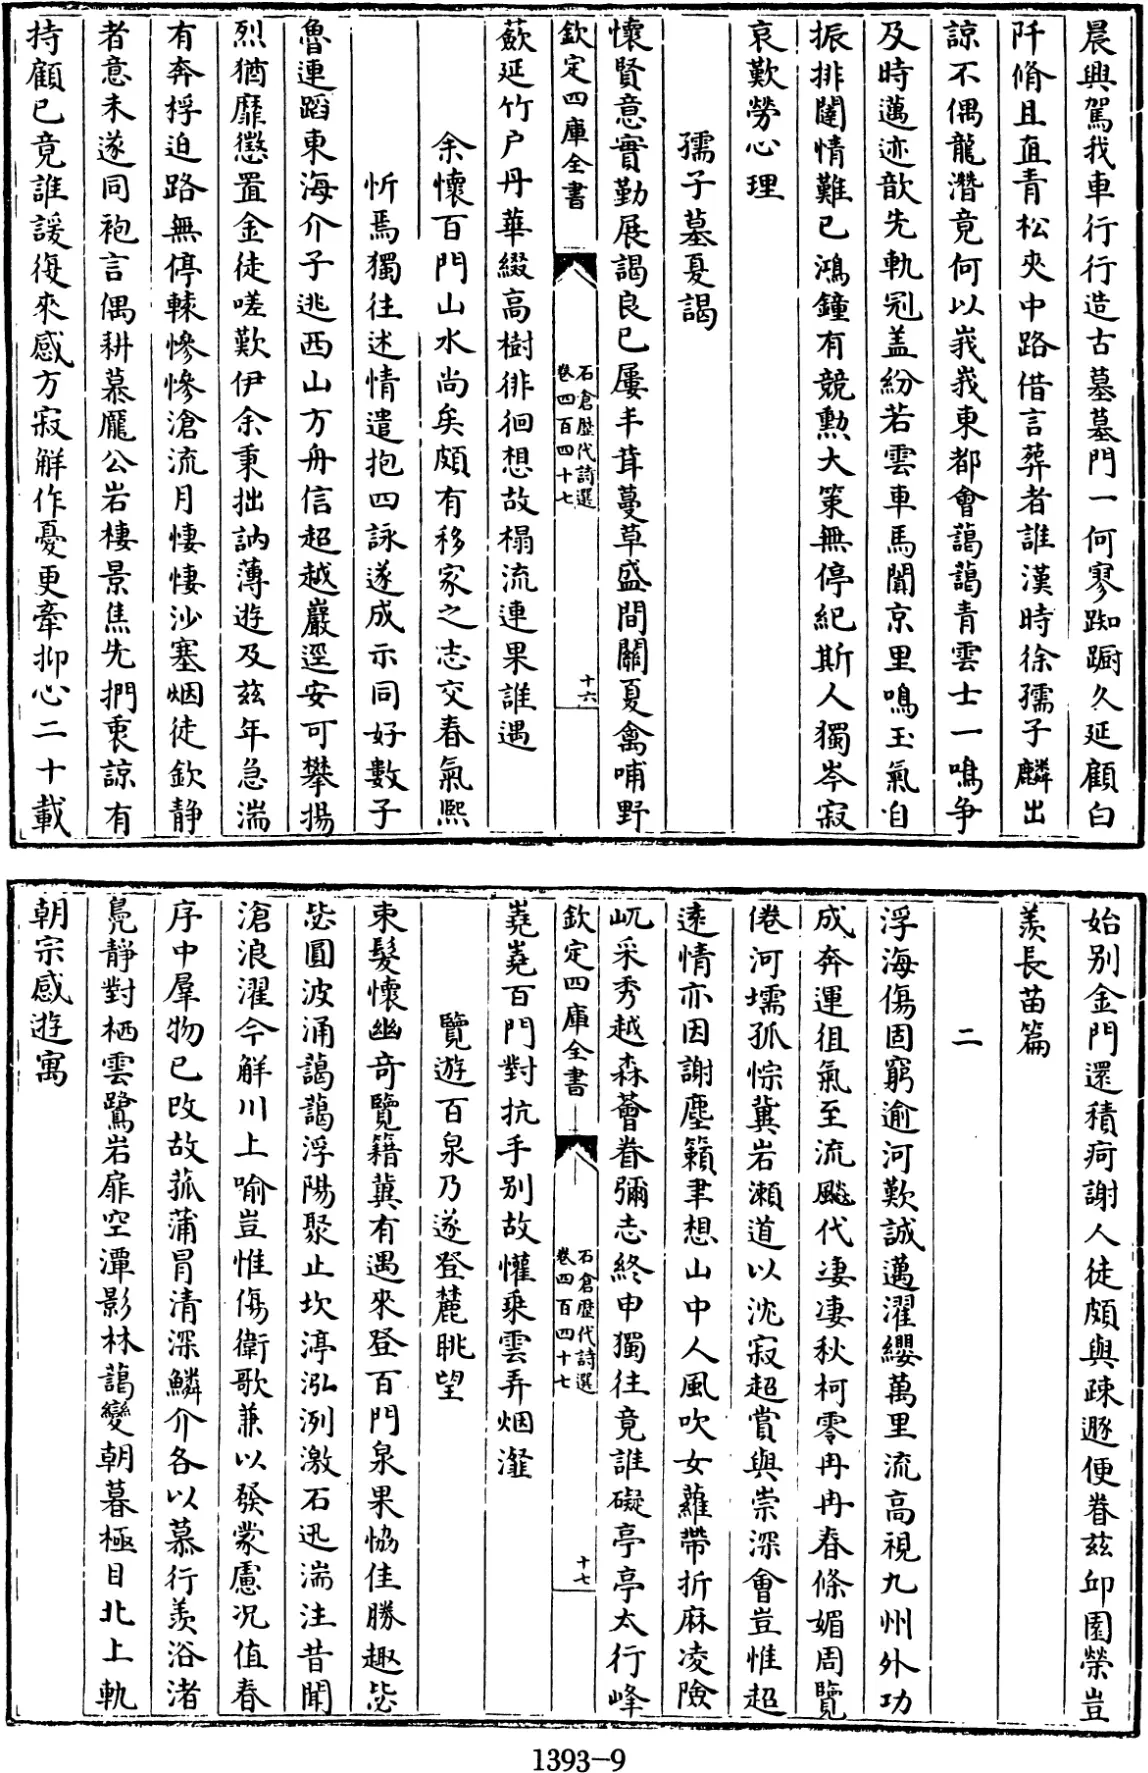 晨興駕我車行行造古墓墓門一何寥踟蹰久延顧白
阡脩且直青松夾中路借言葬者誰漢時徐孺子麟出
諒不偶龍潛竟何以峩峩東都會藹藹青雲士一鳴争
及時邁迹歆先軌冠盖紛若雲車馬闐京里鳴玉氣自
振排闥情難已鴻鐘有競勲大策無停紀斯人獨岑寂
哀歎勞心理
孺子墓夏謁
懷賢意實勤展謁良已屢丰茸蔓草盛間關夏禽哺野
欽定四庫全書
石倉歷代詩選
卷四百四十七
十六
蔌延竹户丹華綴高樹徘徊想故榻流連果誰遇
余懷百門山水尚矣頗有移家之志交春氣熙
忻焉獨往述情遣抱四詠遂成示同好數子
魯連蹈東海介子逃西山方舟信超越巖逕安可攀揚
烈猶靡懲置金徒嗟歎伊余秉拙訥薄遊及兹年急湍
有奔桴迫路無停轅慘慘滄流月悽悽沙塞烟徒欽静
者意未遂同袍言偶耕慕龐公岩棲景焦先捫衷諒有
持顧已竟誰諼復來感方寂解作憂更牽抑心二十載
始別金門還積疴謝人徒頗與疎遯便眷兹邱園榮豈
羨長苗篇
二
浮海傷固窮逾河歎誠邁濯纓萬里流高視九州外功
成奔運徂氣至流飈代凄凄秋柯零冉冉春條媚周覽
倦河壖孤悰冀岩瀨道以沈寂超賞與崇深會豈惟超
逺情亦因謝塵籟聿想山中人風吹女蘿帶折麻凌險
屼采秀越森薈眷彌志終申獨往竟誰礙亭亭太行峰
欽定四庫全書
石倉歷代詩選
卷四百四十七
十七
嶤嶤百門對抗手別故懽乗雲弄烟瀣
覽遊百泉乃遂登麓眺望
束髮懷幽奇覽籍冀有遇來登百門泉果恊佳勝趣毖
毖圓波涌藹藹浮陽聚止坎渟泓洌激石迅湍注昔聞
滄浪濯今解川上喻豈惟傷衛歌兼以發蒙慮况值春
序中羣物已改故菰蒲冐清深鱗介各以慕行羨浴渚
鳧靜對栖雲鷺岩扉空潭影林藹變朝暮極目北上軌
朝宗感遊寓
1393-9